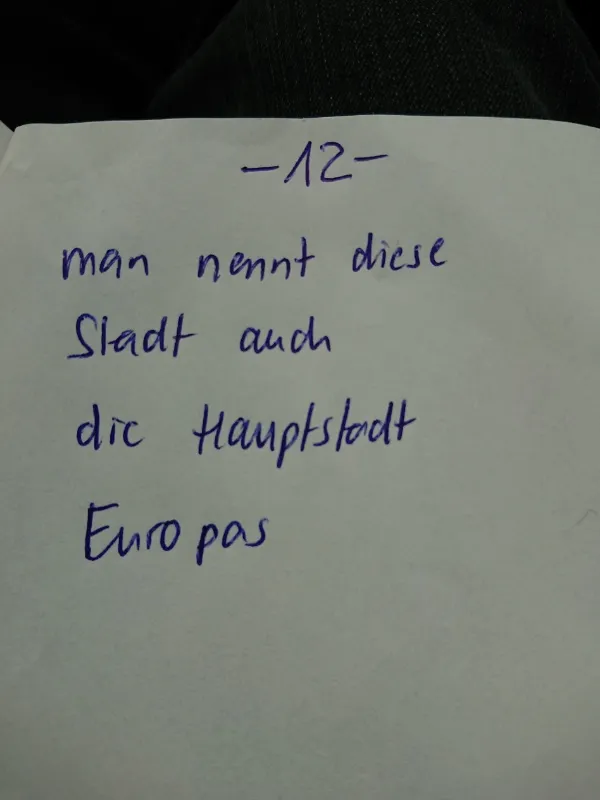 -12-
man nennt diese
Stadt auch
die Hauptstadt
Europas